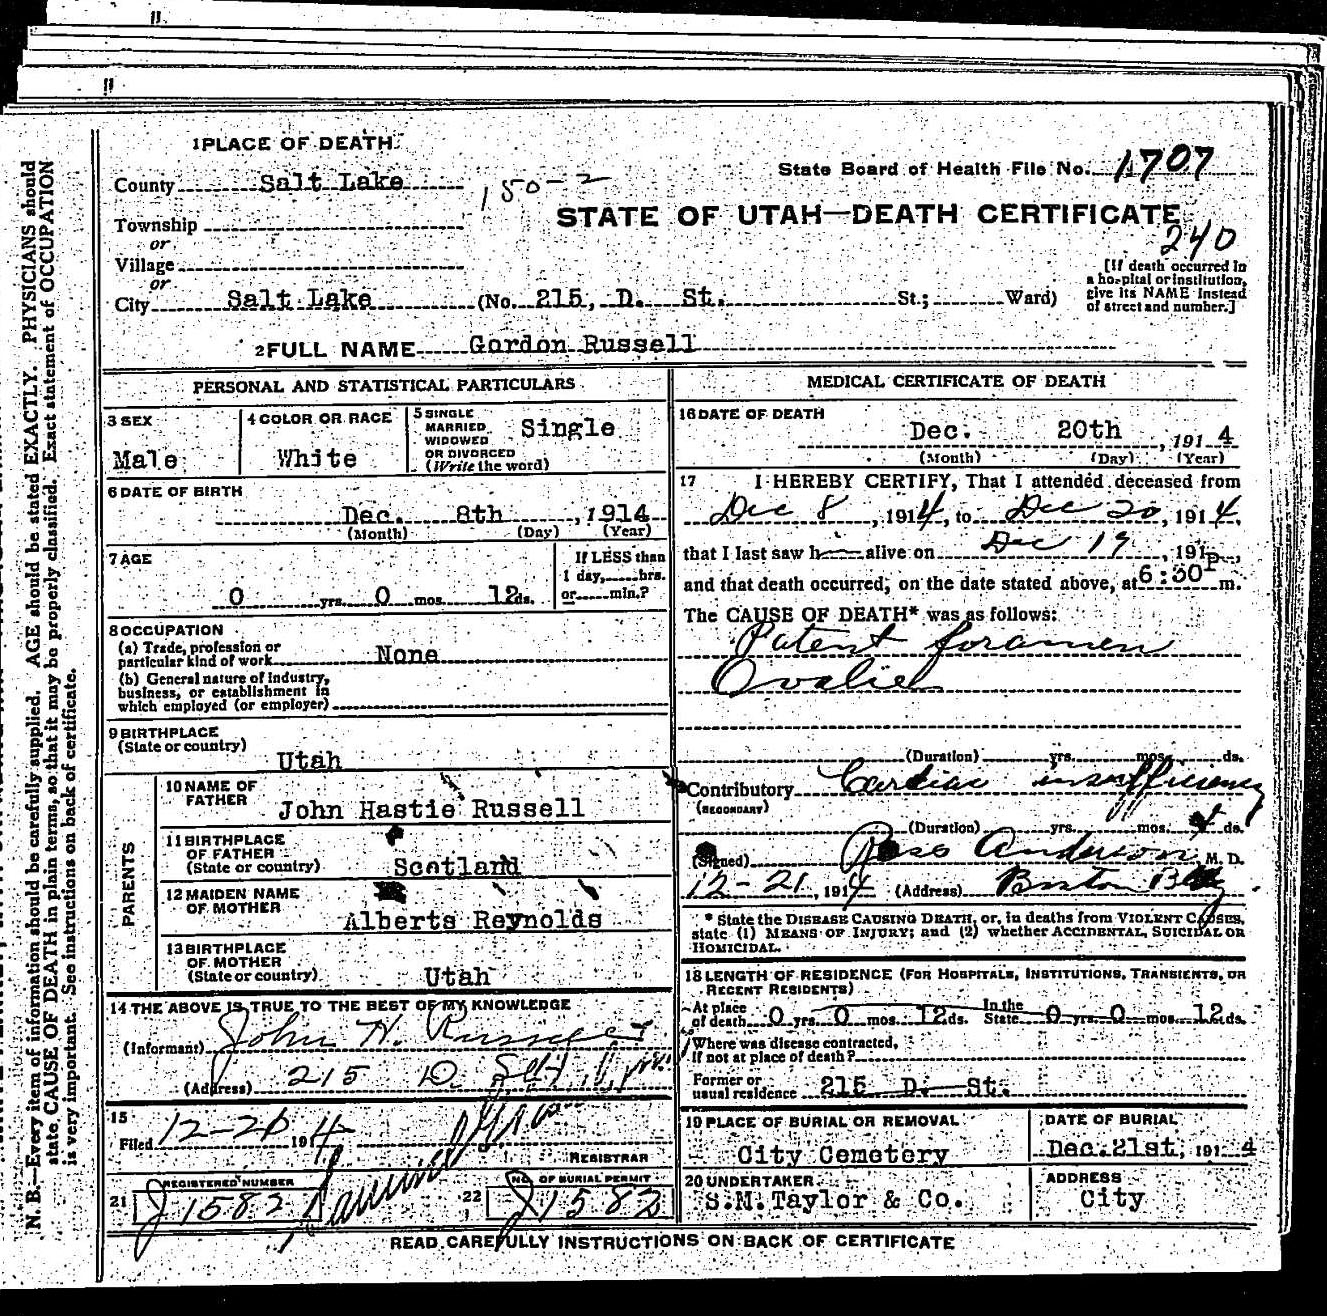 1 PLACE OF DEATH
County Salt Lake
150-2
State Board of Health File No. 1707
STATE OF UTAH—DEATH CERTIFICATE
240
Township
or
Village
or
City Salt Lake (No. 215, D. St. St.; Ward)
[If death occurred in a hospital or institution, give its NAME instead of street and number.]
2 FULL NAME Gordon Russell
PERSONAL AND STATISTICAL PARTICULARS
3 SEX
Male
4 COLOR OR RACE
White
5 SINGLE
MARRIED
WIDOWED
OR DIVORCED
(Write the word)
Single
6 DATE OF BIRTH
Dec. 8th, 1914
(Month) (Day) (Year)
7 AGE
0 yrs. 0 mos. 12 ds.
If LESS than
1 day, hrs.
or min.?
8 OCCUPATION
(a) Trade, profession or
particular kind of work None
(b) General nature of industry,
business, or establishment in
which employed (or employer)
9 BIRTHPLACE
(State or country)
Utah
PARENTS
10 NAME OF
FATHER
John Hastie Russell
11 BIRTHPLACE
OF FATHER
(State or country)
Scotland
12 MAIDEN NAME
OF MOTHER
Alberts Reynolds
13 BIRTHPLACE
OF MOTHER
(State or country)
Utah
14 THE ABOVE IS TRUE TO THE BEST OF MY KNOWLEDGE
(Informant) John H. Russell
(Address) 215 D.
15
Filed 12-21 1914
REGISTRAR
21 REGISTERED NUMBER
J 1582
22 NO. OF BURIAL PERMIT
J 1583
MEDICAL CERTIFICATE OF DEATH
16 DATE OF DEATH
Dec. 20th, 1914
(Month) (Day) (Year)
17 I HEREBY CERTIFY, That I attended deceased from
Dec 8, 1914, to Dec 20, 1914,
that I last saw h alive on Dec 19, 191
and that death occurred, on the date stated above, at 6:30 P m.
The CAUSE OF DEATH* was as follows:
Patent foramen
Ovalie
(Duration) yrs. mos. ds.
Contributory Cardiac insufficiency
(SECONDARY)
(Duration) yrs. mos. ds.
(Signed) Anderson, M. D.
12-21, 1914 (Address) Boston Bldg
* State the DISEASE CAUSING DEATH, or, in deaths from VIOLENT CAUSES,
state (1) MEANS OF INJURY; and (2) whether ACCIDENTAL, SUICIDAL OR
HOMICIDAL.
18 LENGTH OF RESIDENCE (FOR HOSPITALS, INSTITUTIONS, TRANSIENTS, OR
RECENT RESIDENTS)
At place
of death 0 yrs. 0 mos. 12 ds. In the State 0 yrs. 0 mos. 12 ds.
Where was disease contracted,
if not at place of death?
Former or
usual residence 215 D. St.
19 PLACE OF BURIAL OR REMOVAL
City Cemetery
DATE OF BURIAL
Dec. 21st, 1914
20 UNDERTAKER
S.M. Taylor & Co.
ADDRESS
City
READ CAREFULLY INSTRUCTIONS ON BACK OF CERTIFICATE
N. B.—Every item of information should be carefully supplied. AGE should be stated EXACTLY. PHYSICIANS should
state CAUSE OF DEATH in plain terms, so that it may be properly classified. Exact statement of OCCUPATION
is very important. See instructions on back of certificate.